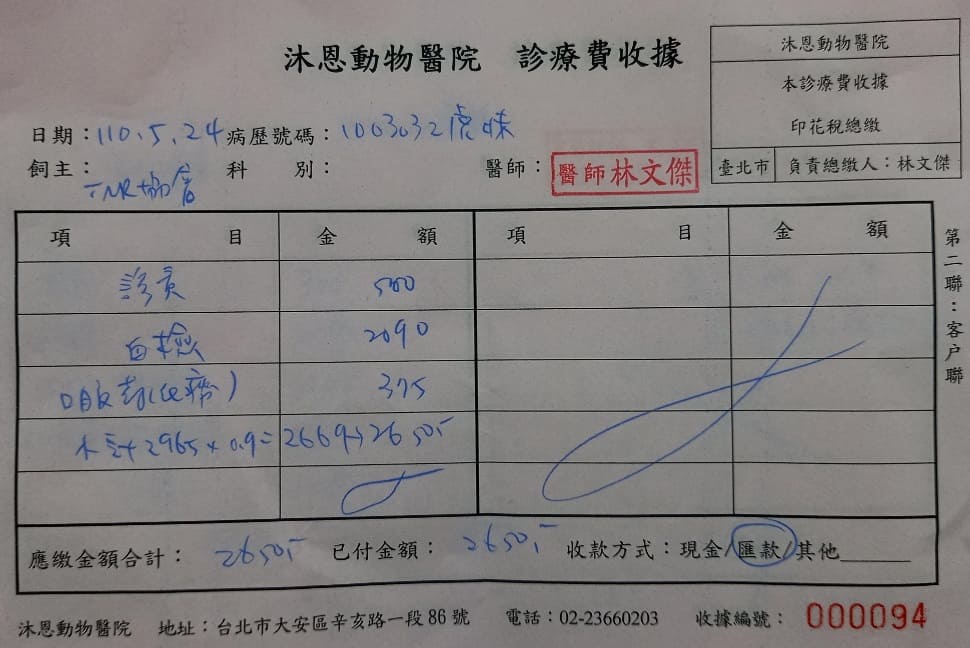 沐恩動物醫院 診療費收據
沐恩動物醫院
本診療費收據
印花稅總繳
臺北市 負責總繳人：林文傑
日期：110.5.24 病歷號碼：1003032虎妹
飼主：TNR協會 科 別： 醫師：醫師林文傑
項 目 金 額 項 目 金 額
診費 500
血檢 2090
口服藥 375
小計 2965×0.9= 2669→2650.-
應繳金額合計：2650.- 已付金額：2650.- 收款方式：現金/匯款/其他
第二聯：客戶聯
沐恩動物醫院 地址：台北市大安區辛亥路一段86號 電話：02-23660203 收據編號：000094